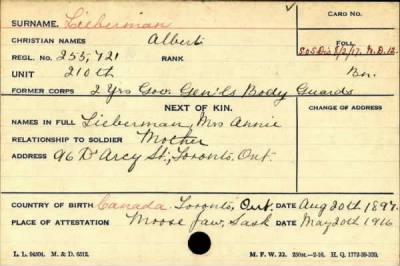 SURNAME, Lieberman
CARD NO.
CHRISTIAN NAMES Albert
FOLL.
REGL. NO. 255,721 RANK
S.O.S. Dis 8/2/17. M.D. 12.
UNIT 210th Bn.
FORMER CORPS 2 Yrs Gov. Gen'ls Body Guards
NEXT OF KIN.
CHANGE OF ADDRESS
NAMES IN FULL Lieberman, Mrs Annie
RELATIONSHIP TO SOLDIER Mother
ADDRESS 96 D'Arcy St., Toronto, Ont.
COUNTRY OF BIRTH Canada. Toronto, Ont. DATE Aug 20th 1897.
PLACE OF ATTESTATION Moose Jaw, Sask DATE May 20th 1916
L. L. 94504. M. & D. 6512. M. F. W. 22. 250M.-2-16. H. Q. 1772-39-339.